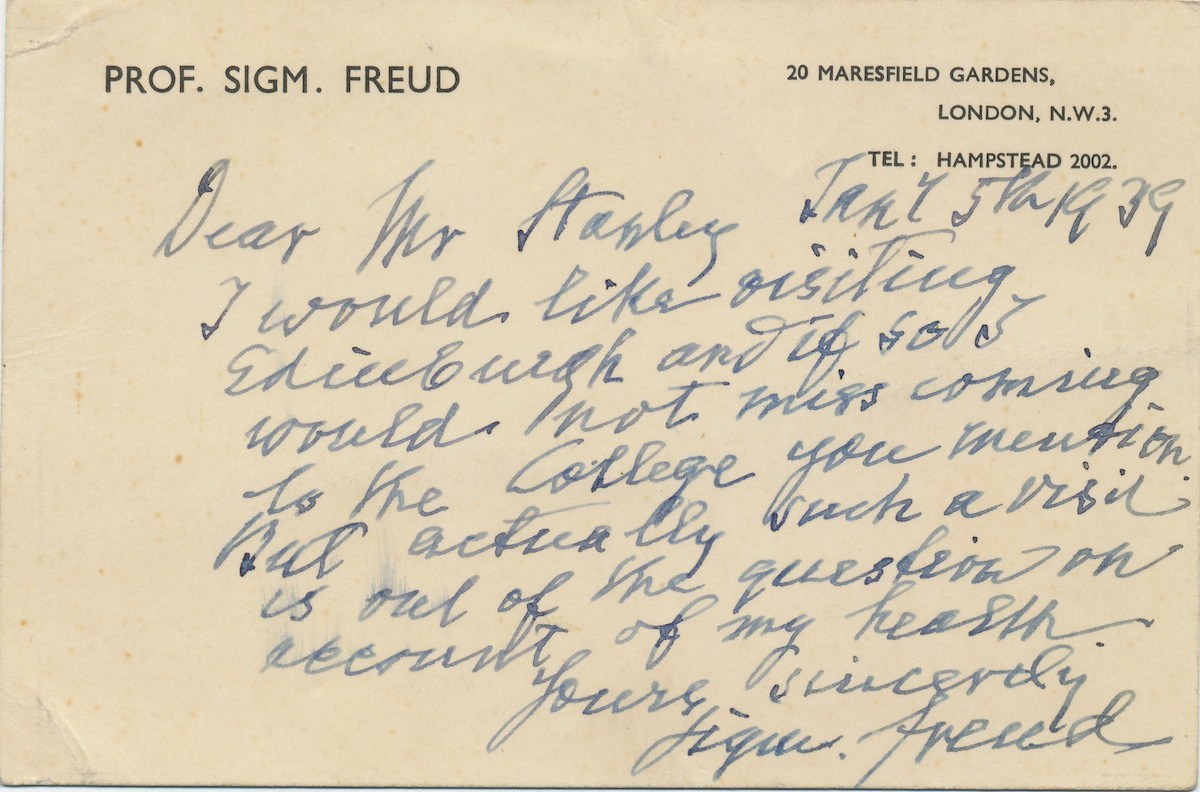 PROF. SIGM. FREUD
20 MARESFIELD GARDENS,
LONDON, N.W.3.
TEL: HAMPSTEAD 2002.
Jany 5th 1939
Dear Mr Stanley
I would like visiting
Edinburgh and if so I
would not miss coming
to the College you mention.
But actually such a visit
is out of the question on
account of my health.
Yours sincerely
Sigm. Freud